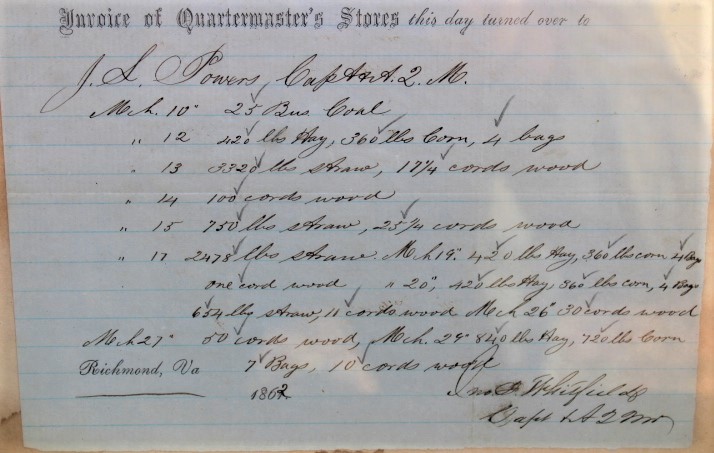 Invoice of Quartermaster's Stores this day turned over to
J. L. Powers, Capt & A. Q. M.
Mch. 10" 25 Bus Coal
" 12 420 lbs Hay, 360 lbs Corn, 4 bags
" 13 3320 lbs straw, 17 1/4 cords wood
" 14 100 cords wood
" 15 750 lbs straw, 25 1/4 cords wood
" 17 2478 lbs straw. Mch 19" 420 lbs Hay, 360 lbs corn 4 Bags
one cord wood, " 20", 420 lbs Hay, 360 lbs corn, 4 Bags
654 lbs straw, 11 cords wood Mch 26" 30 cords wood
Mch 27" 50 cords wood, Mch. 29" 840 lbs Hay, 720 lbs Corn
Richmond, Va 7 Bags, 10 cords wood
1862 Whitfield
Capt & A Q M